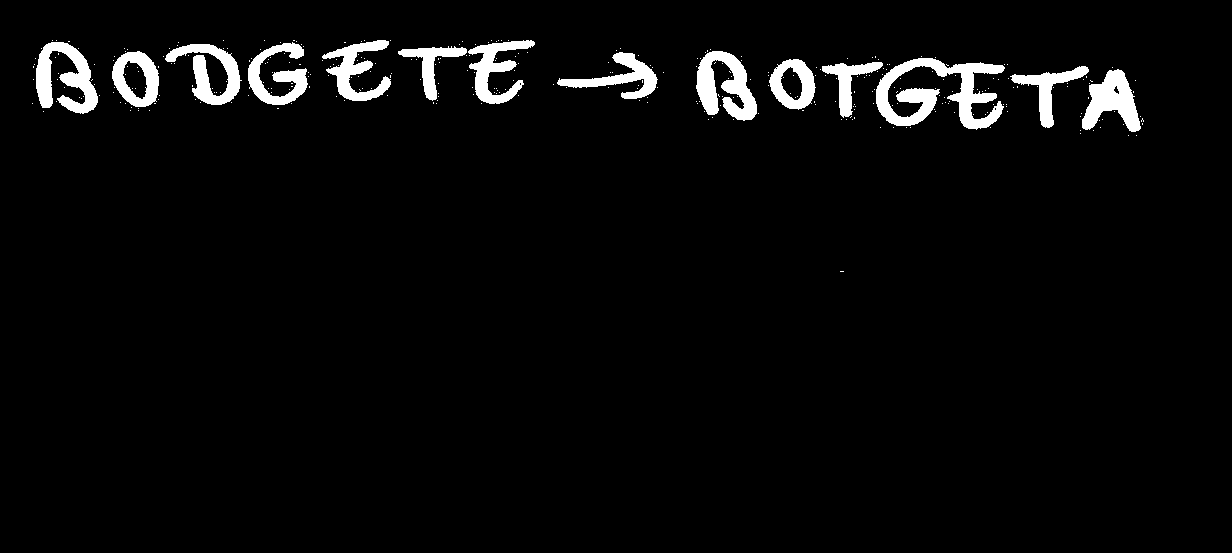 BODGETE → BOTGETA